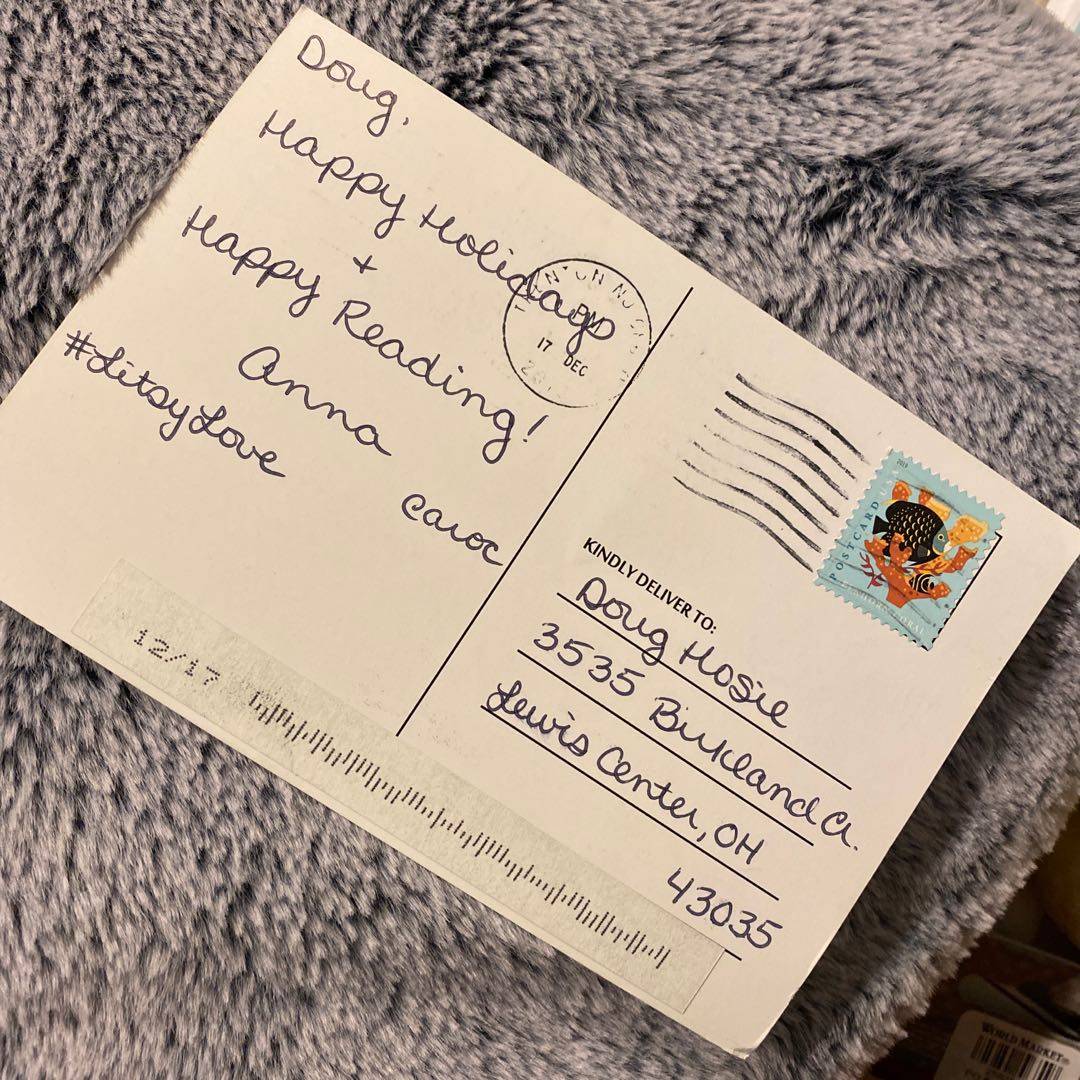 Doug,
Happy Holidays
+
Happy Reading!
Anna
#LitsyLove
17 DEC
PM
12/17
2019
POSTCARD
KINDLY DELIVER TO:
Doug Hosie
3535 Birkland Cr.
Lewis Center, OH
43035
WORLD MARKET